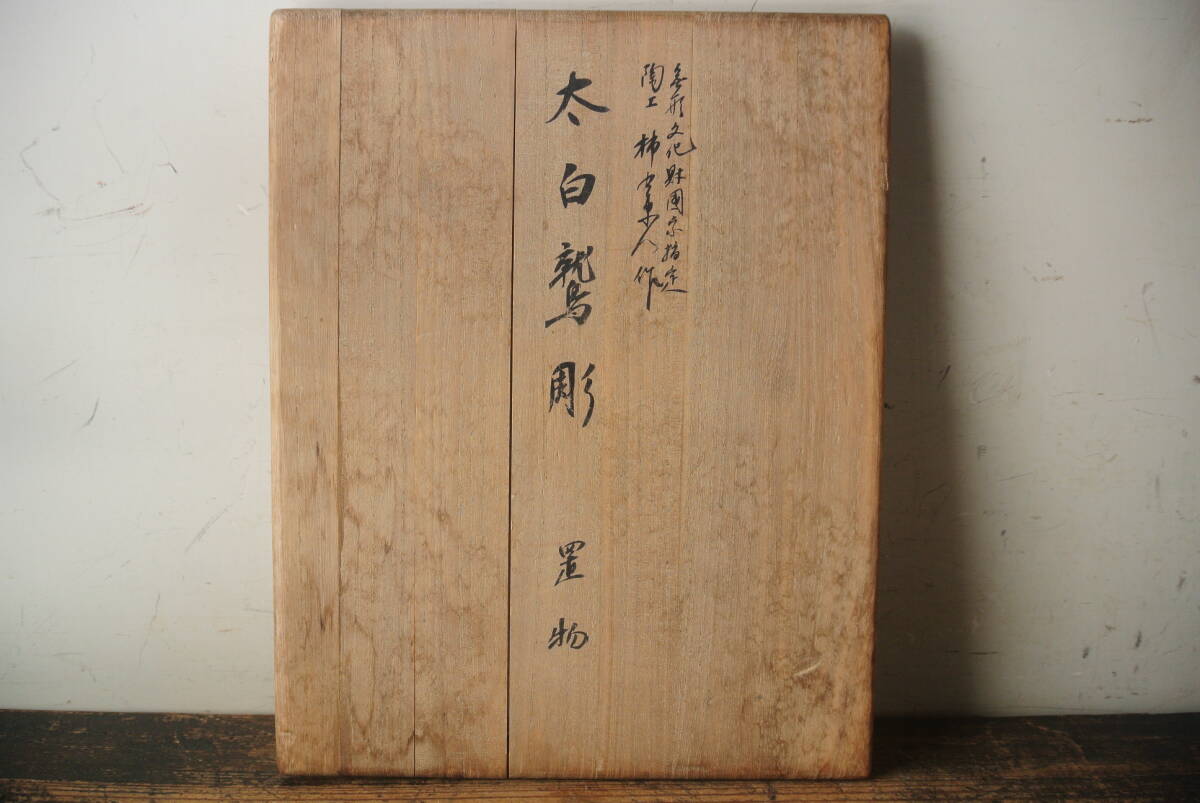 無形文化財国家指定
陶工 柿右衛門作
太白鷲彫 置物